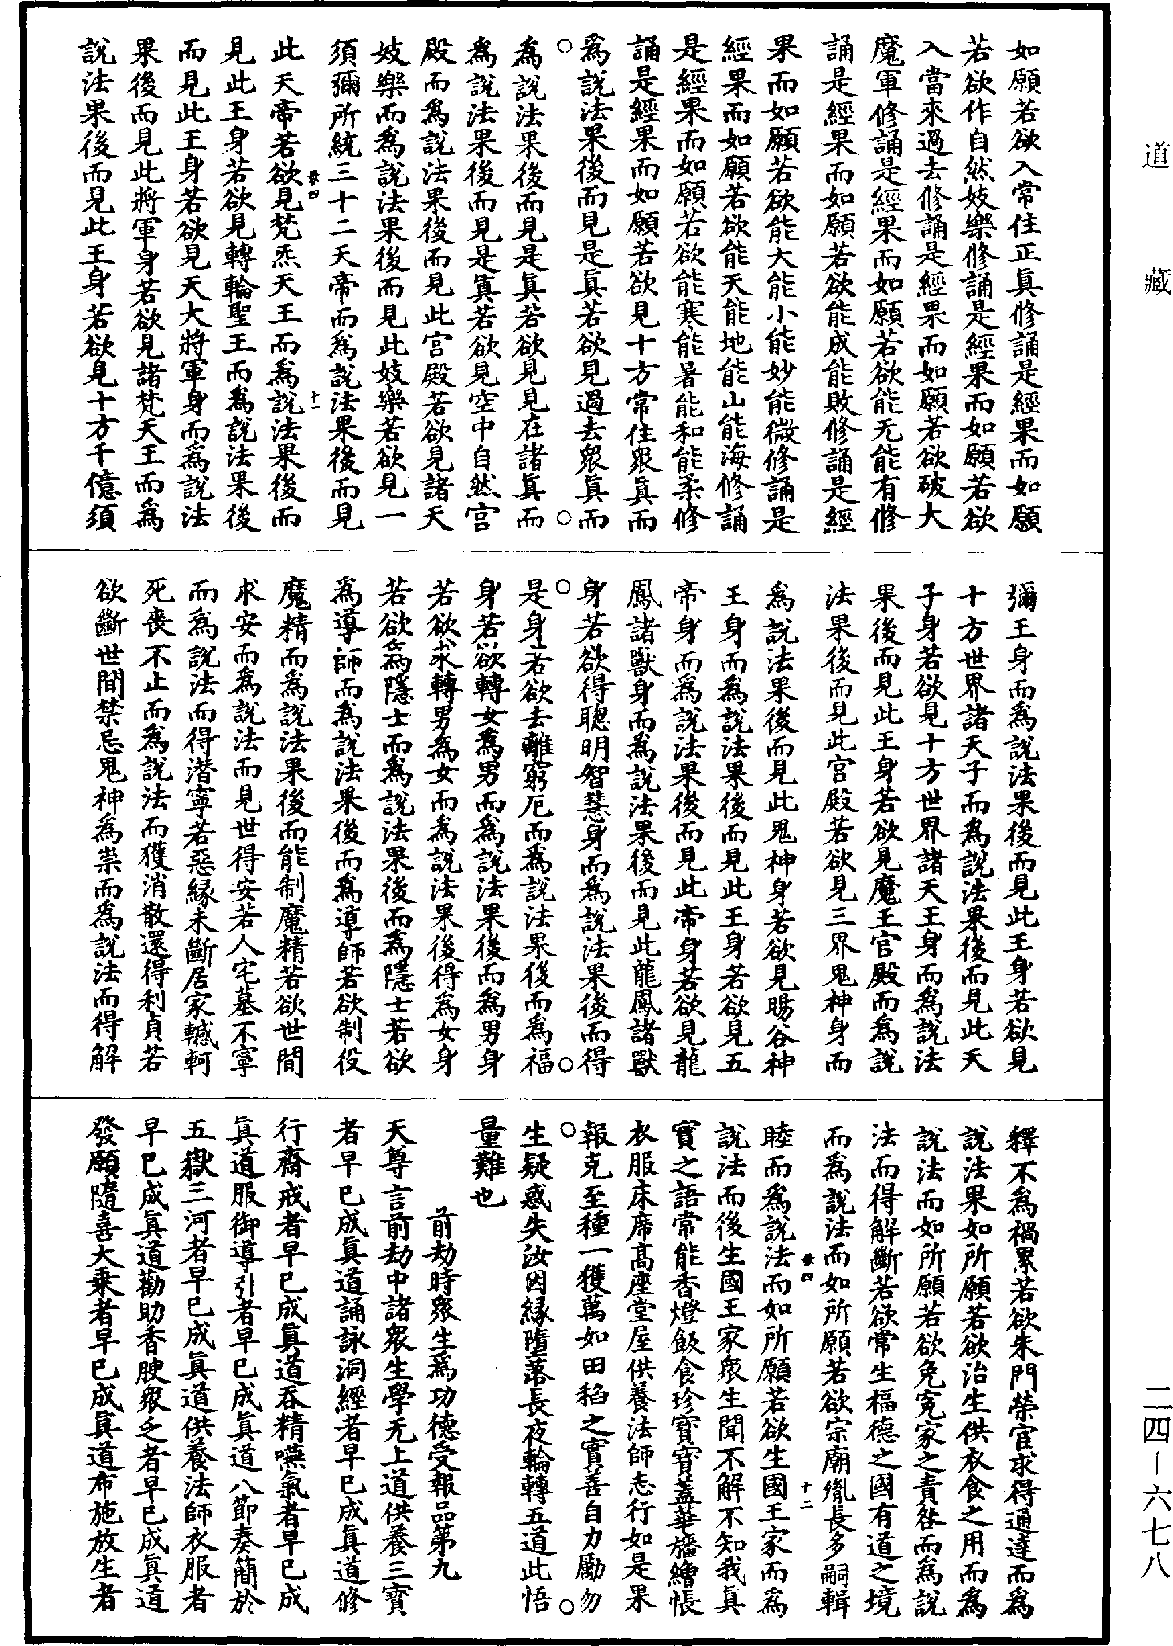 道藏
如願若欲入常住正真修誦是經果而如願
若欲作自然妓樂修誦是經果而如願若欲
入當來過去修誦是經果而如願若欲破大
魔軍修誦是經果而如願若欲能无能有修
誦是經果而如願若欲能成能敗修誦是經
果而如願若欲能大能小能妙能微修誦是
經果而如願若欲能天能地能山能海修誦
是經果而如願若欲能寒能暑能和能柔修
誦是經果而如願若欲見十方常住眾真而
爲說法果後而見是真若欲見過去眾真而
爲說法果後而見是真若欲見見在諸真而
爲說法果後而見是真若欲見空中自然宮
殿而爲說法果後而見此宮殿若欲見諸天
妓樂而爲說法果後而見此妓樂若欲見一
須彌所統三十二天帝而爲說法果後而見
養四 十一
此天帝若欲見梵炁天王而爲說法果後而
見此王身若欲見轉輪聖王而爲說法果後
而見此王身若欲見天大將軍身而爲說法
果後而見此將軍身若欲見諸梵天王而爲
說法果後而見此王身若欲見十方千億須
彌王身而爲說法果後而見此王身若欲見
十方世界諸天子而爲說法果後而見此天
子身若欲見十方世界諸天王身而爲說法
果後而見此王身若欲見魔王官殿而爲說
法果後而見此宮殿若欲見三界鬼神身而
爲說法果後而見此鬼神身若欲見暘谷神
王身而爲說法果後而見此王身若欲見五
帝身而爲說法果後而見此帝身若欲見龍
鳳諸獸身而爲說法果後而見此龍鳳諸獸
身若欲得聰明智慧身而爲說法果後而得
是身若欲去離窮厄而爲說法果後而爲福
身若欲轉女爲男而爲說法果後而爲男身
若欲求轉男爲女而爲說法果後得爲女身
若欲爲隱士而爲說法果後而爲隱士若欲
爲導師而爲說法果後而爲導師若欲制役
魔精而爲說法果後而能制魔精若欲世間
求安而爲說法而見世得安若人宅墓不寧
而爲說法而得潛寧若惡緣未斷居家轗軻
死喪不止而爲說法而獲消散還得利貞若
欲斷世間禁忌鬼神爲祟而爲說法而得解
釋不爲禍累若欲朱門榮官求得通達而爲
說法果如所願若欲治生供衣食之用而爲
說法而如所願若欲免冤家之責咎而爲說
法而得解斷若欲常生福德之國有道之境
而爲說法而如所願若欲宗廟胤長多嗣輯
養四 十二
睦而爲說法而如所願若欲生國王家而爲
說法而後生國王家眾生聞不解不知我真
實之語常能香燈飯食珍寶寶蓋華旛繒帳
衣服床席高座堂屋供養法師志行如是果
報克至種一獲萬如田稻之實善自力勵勿
生疑惑失汝因緣墮落長夜輪轉五道此悟
量難也
前劫時眾生爲功德受報品第九
天尊言前劫中諸眾生學无上道供養三寶
者早已成真道誦詠洞經者早已成真道修
行齋戒者早已成真道吞精嚥氣者早已成
真道服御導引者早已成真道八節奏簡於
五嶽三河者早已成真道供養法師衣服者
早已成真道勸助香腴眾乏者早已成真道
發願隨喜大乘者早已成真道布施放生者
二四—六七八